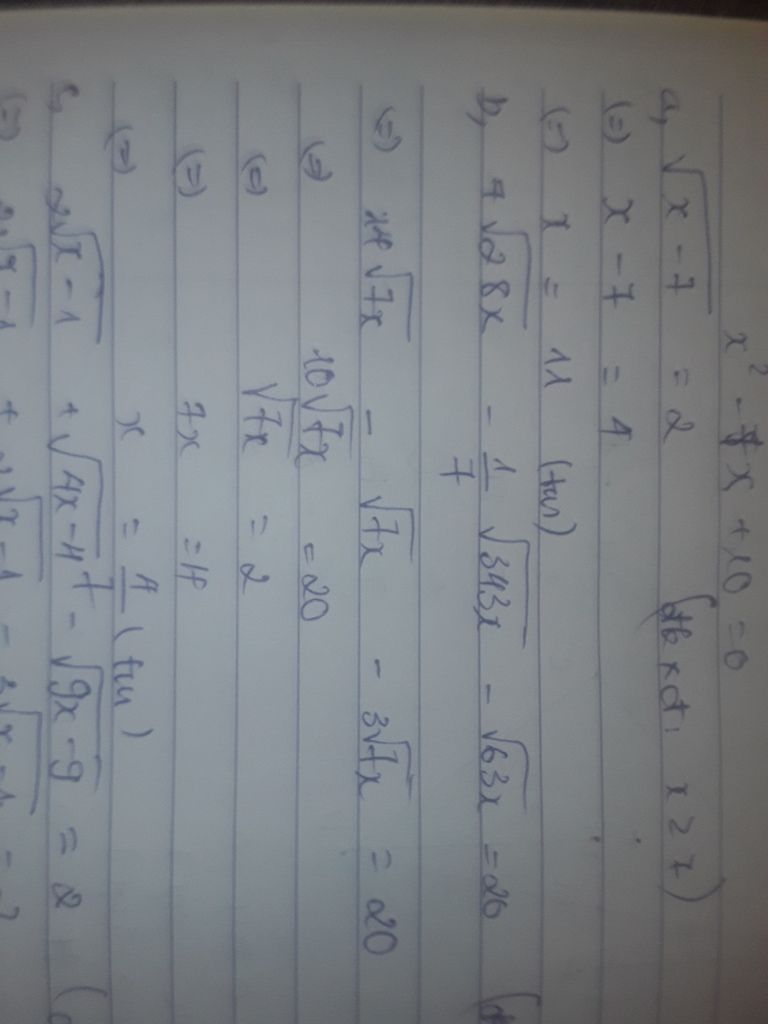 x² - 7x + 10 = 0
a, √(x-7) = 2 (đkxđ: x ≥ 7)
(=) x - 7 = 4
(=) x = 11 (tm)
b, 7√(28x) - 1/7 √(343x) - √(63x) = 20
(=) 14√(7x) - √(7x) - 3√(7x) = 20
(=) 10√(7x) = 20
(=) √(7x) = 2
(=) 7x = 4
(=) x = 4/7 (tm)
c, 2√(x-1) + √(4x-4) - √(9x-9) = 2
(=) 2√(x-1) + 2√(x-1) - 3√(x-1) = 2